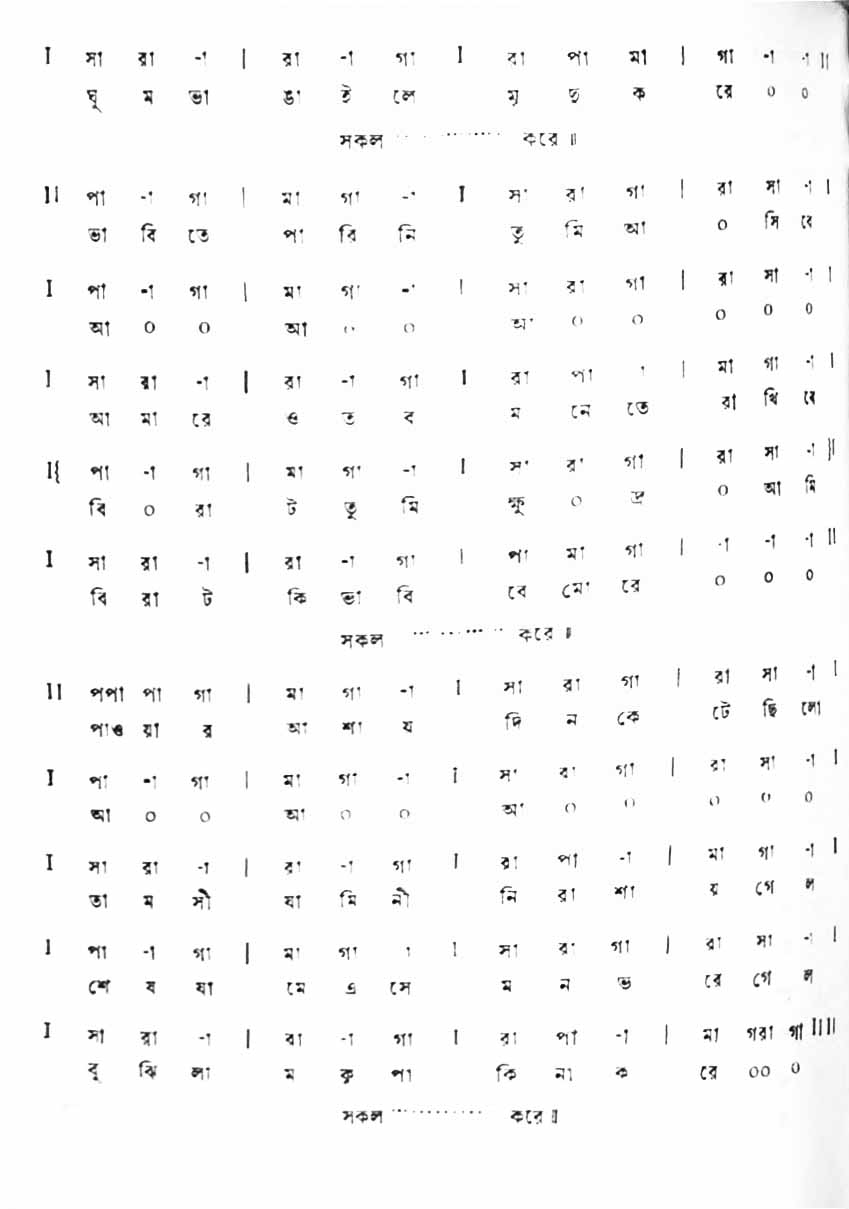 I সা রা -া | রা -া গা I রা পা মা | গা -া -া ||
ঘু ম ভা ঙা ই লে মৃ দু ক রে ০ ০
সকল ·············· করে ॥
II পা -া গা | মা গা -া I সা রা গা | রা সা -া |
ভা বি তে পা রি নি তু মি আ ০ সি বে
I পা -া গা | মা গা -া | সা রা গা | রা সা -া |
আ ০ ০ আ ০ ০ আ ০ ০ ০ ০ ০
I সা রা -া | রা -া গা I রা পা া | মা গা -া |
আ মা রে ও ত ব ম নে তে রা খি বে
I{ পা -া গা | মা গা -া I সা রা গা | রা সা -া }|
বি ০ রা ট তু মি ক্ষু ০ দ্র ০ আ মি
I সা রা -া | রা -া গা | পা মা গা | -া -া -া ||
বি রা ট কি ভা বি বে মো রে ০ ০ ০
সকল ·············· করে ॥
II পপা পা গা | মা গা -া I সা রা গা | রা সা -া |
পাও য়া র আ শা য দি ন কে টে ছি লো
I পা -া গা | মা গা -া I সা রা গা | রা সা -া |
আ ০ ০ আ ০ ০ আ ০ ০ ০ ০ ০
I সা রা -া | রা -া গা I রা পা -া | মা গা -া |
তা ম সী যা মি নী নি রা শা য় গে ল
I পা -া গা | মা গা া I সা রা গা | রা সা -া |
শে ষ যা মে এ সে ম ন ভ রে গে ল
I সা রা -া | রা -া গা I রা পা -া | মা গরা গা IIII
বু ঝি লা ম কৃ পা কি না ক রে ০০ ০
সকল ·············· করে ॥